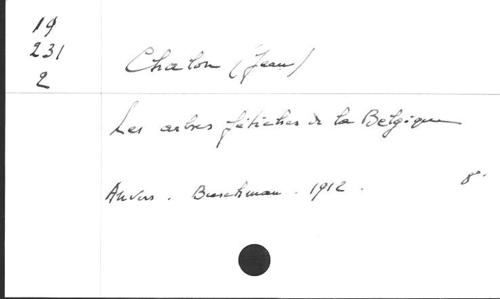 19
231
2
Chalon (Jean)
Les arbres fétiches de la Belgique
Anvers. Buschman. 1912. 8°.